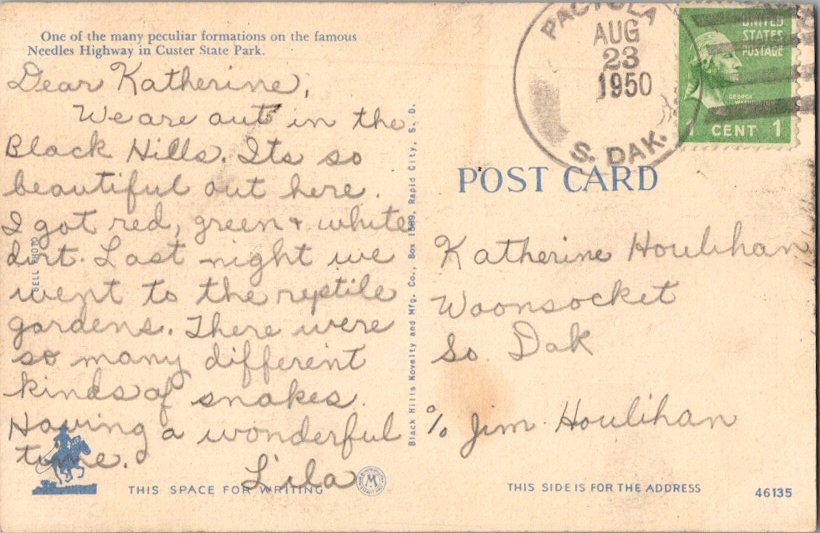 One of the many peculiar formations on the famous
Needles Highway in Custer State Park.
Dear Katherine,
We are out in the
Black Hills. Its so
beautiful out here.
I got red, green + white
dirt. Last night we
went to the reptile
gardens. There were
so many different
kinds of snakes.
Having a wonderful
time.
Lila
THIS SPACE FOR WRITING
M
GELL PHOTO
Black Hills Novelty and Mfg. Co., Box 1589, Rapid City, S. D.
PACTOLA
AUG
23
1950
S. DAK.
UNITED
STATES
POSTAGE
GEORGE
1 CENT 1
POST CARD
Katherine Houlihan
Woonsocket
So. Dak
℅ Jim Houlihan
THIS SIDE IS FOR THE ADDRESS
46135